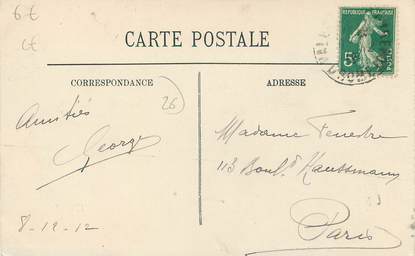 6€
c€
CARTE POSTALE
RÉPUBLIQUE FRANÇAISE
5c
POSTES
CORRESPONDANCE
ADRESSE
26
Amitiés
George
8-12-12
Madame Fenestre
113 Boul.d Haussmann
Paris